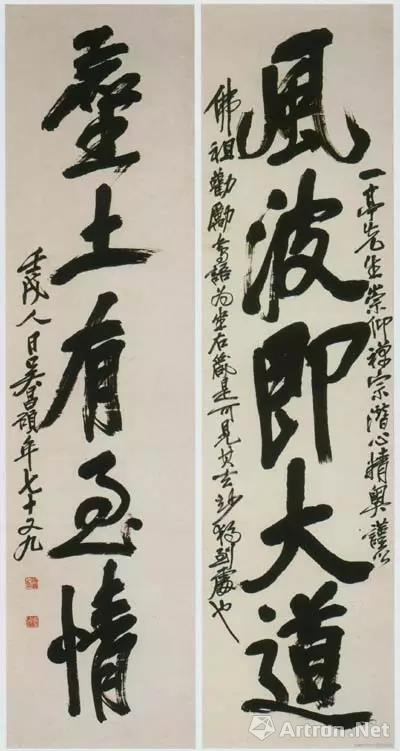 風波即大道
一亭先生崇仰禪宗潛心精奧謹以
佛祖勸勵語為坐右箴是可見其玄妙獨到處也
塵土有至情
壬戌人日吳昌碩年七十又九
Artron.Net